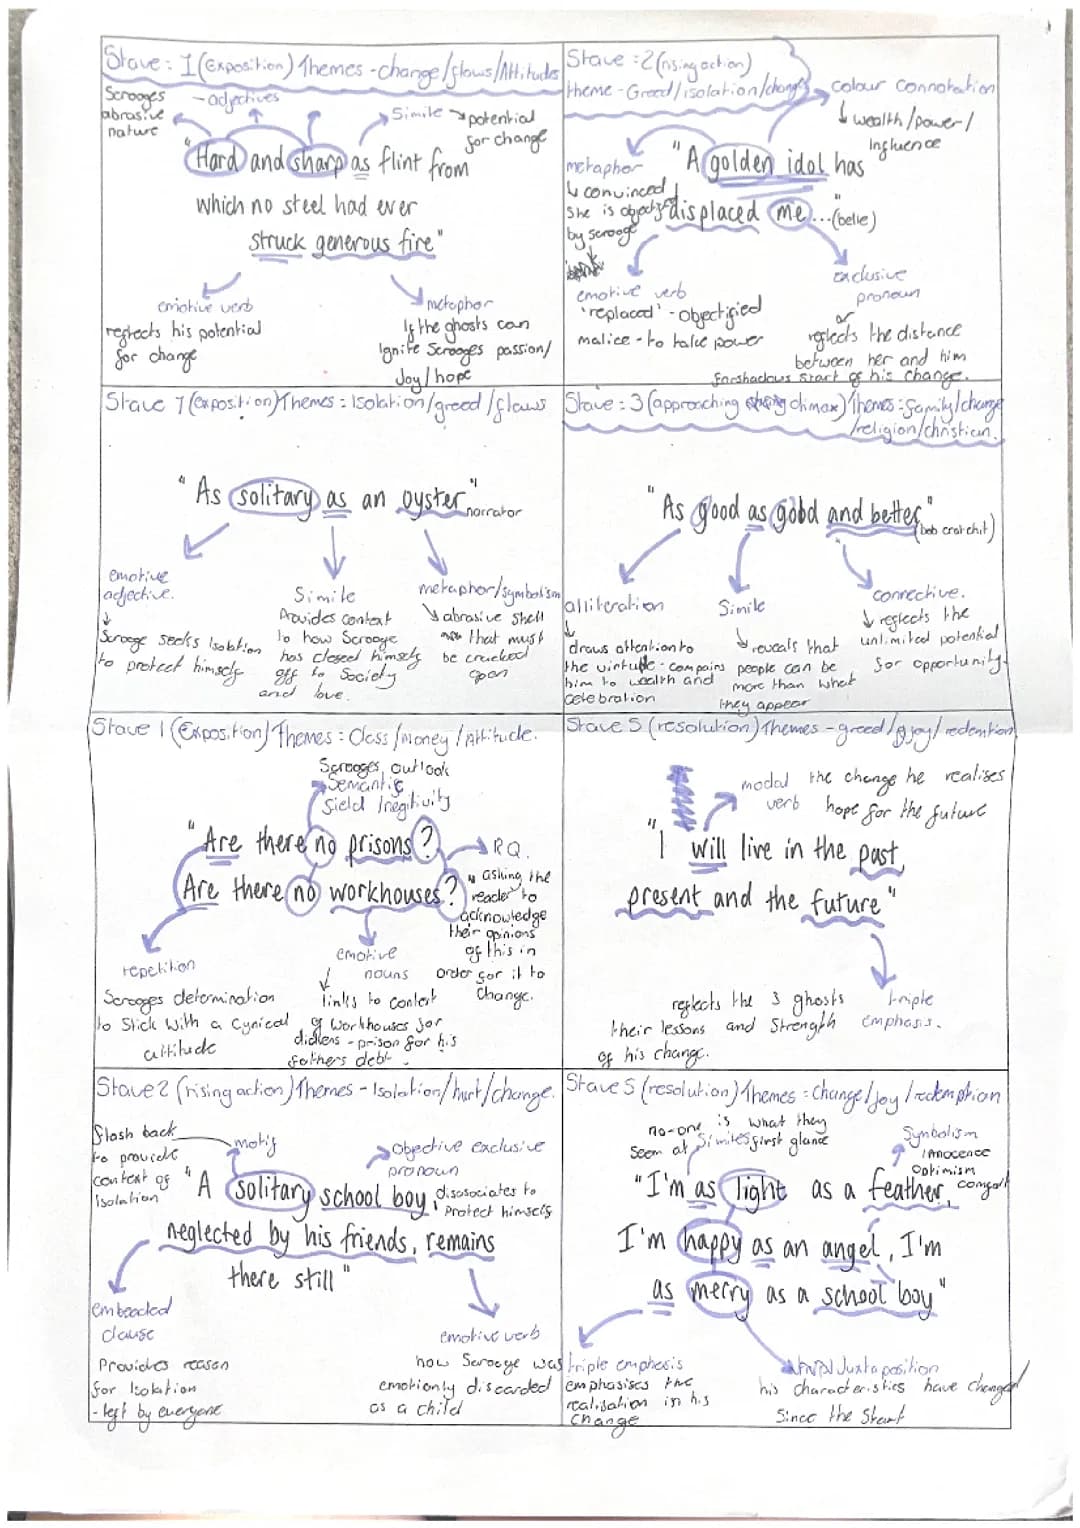 Stave : 1 (Exposition) Themes - change/flaws/Attitudes
Scrooges
abrasive
nature
- adjectives
Simile
potential
for change
"Hard and sharp as flint from
which no steel had ever
struck generous fire"
emotive verb
reflects his potential
for change
metaphor
If the ghosts can
Ignite Scrooges passion/
Joy/hope
Stave :2 (rising action)
theme - Greed/isolation/change
colour connotation
wealth/power/
Influence
metaphor
convinced
she is objectified
by scrooge
"A golden idol has
displaced me..."
(belle)
emotive verb
'replaced' - objectified
malice - to take power
exclusive
pronoun
or
reflects the distance
between her and him
foreshadows start of his change.
Stave 1 (exposition) Themes : Isolation/greed/flaws
"As solitary as an oyster"
narrator
emotive
adjective.
Scrooge seeks Isolation
to protect himself
Simile
Provides context
to how Scrooge
has closed himself
off to Society
and love.
metaphor/symbolism
abrasive shell
that must
be cracked
open
Stave : 3 (approaching climax) Themes : family/change
/religion/christian.
"As good as gold and better"
(bob cratchit)
alliteration
draws attention to
the virtude - compairs
him to wealth and
celebration
Simile
reveals that
people can be
more than what
they appear
connective.
reflects the
unlimited potential
for opportunity.
Stave 1 (Exposition) Themes : Class/Money/Attitude.
Scrooges outlook
Semantic
field Inegitivity
"Are there no prisons?
Are there no workhouses?
R.Q.
" asking the
reader to
acknowledge
their opinions
of this in
order for it to
Change.
repetition
Scrooges determination
to Stick with a Cynical
attitude
emotive
nouns
links to context
of workhouses for
dickens - prison for his
fathers debt.
Stave 5 (resolution) Themes - greed/joy/redemtion
modal
verb
the change he realises
hope for the future
"I will live in the past,
present and the future"
reflects the 3 ghosts
their lessons and Strength
of his change.
triple
emphasis.
Stave 2 (rising action) Themes - Isolation/hurt/change.
flash back
to provide
context of
isolation
motif
objective exclusive
pronoun
"A solitary school boy,
disosociates to
Protect himself
neglected by his friends, remains
there still"
embeaded
clause
Provides reason
for Isolation
- left by everyone
emotive verb
how Scrooge was
emotionly discarded
as a child
Stave 5 (resolution) Themes : Change/joy/redemption
no-one is what they
seem at first glance
Similes
Symbolism
innocence
optimism
comfort
"I'm as light as a feather,
I'm happy as an angel, I'm
as merry as a school boy"
triple emphasis
emphasises the
realisation in his
change
Juxtaposition
his characteristics have changed
Since the Start